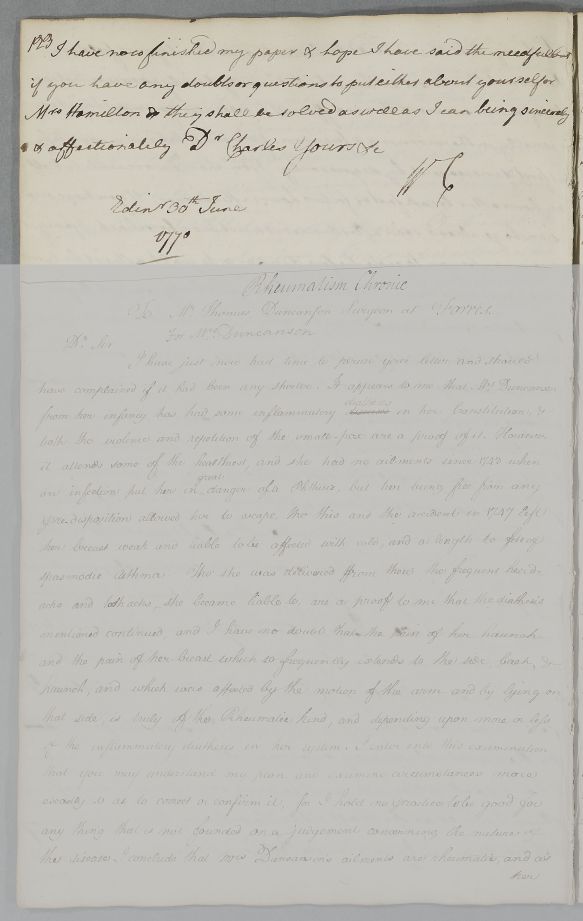 123
I have now finished my paper & hope I have said the needfull but
if you have any doubts or questions to put either about yourself or
Mrs Hamilton they shall be solved as well as I can being sincerely
& affectionately Dr Charles Yours &c
WC
Edinr 30th June
1770
Rheumatism Chronic
To Mr Thomas Duncanson Surgeon at Forres
For Mrs Duncanson
Dr Sir
I have just now had time to peruse your letter and should
have complained if it had been any shorter. It appears to me that Mrs Duncanson
from her infancy has had some inflammatory diathesis in her Constitution, &
both the violence and repetition of the small-pox are a proof of it. However
it attends some of the healthiest, and she had no ailments since 1743 when
an infection put her in great danger of a Phthisis, but her being free from any
pre-disposition allowed her to escape, tho this and the accident in 1747 left
her breast weak and liable to be affected with cold, and a length to
spasmodic asthma. Tho she was relieved from these the frequent head-
achs and toothachs, she became liable to, are a proof to me that the diathesis
mentioned continued, and I have no doubt that the pain of her haunch
and the pain of her breast which so frequently extends to the side, back, &
haunch, and which was affected by the motion of the arm and by lying on
that side, is truly of the Rheumatic kind, and depending upon more or less
of the inflammatory diathesis in her system. I enter into this examination
that you may understand my plan and examine circumstances more
exactly so as to correct or confirm it, for I hold no practice to be good for
any thing that is not founded on a judgement concerning the nature of
the disease. I conclude that Mrs Duncanson's ailments are rheumatic, and as
her